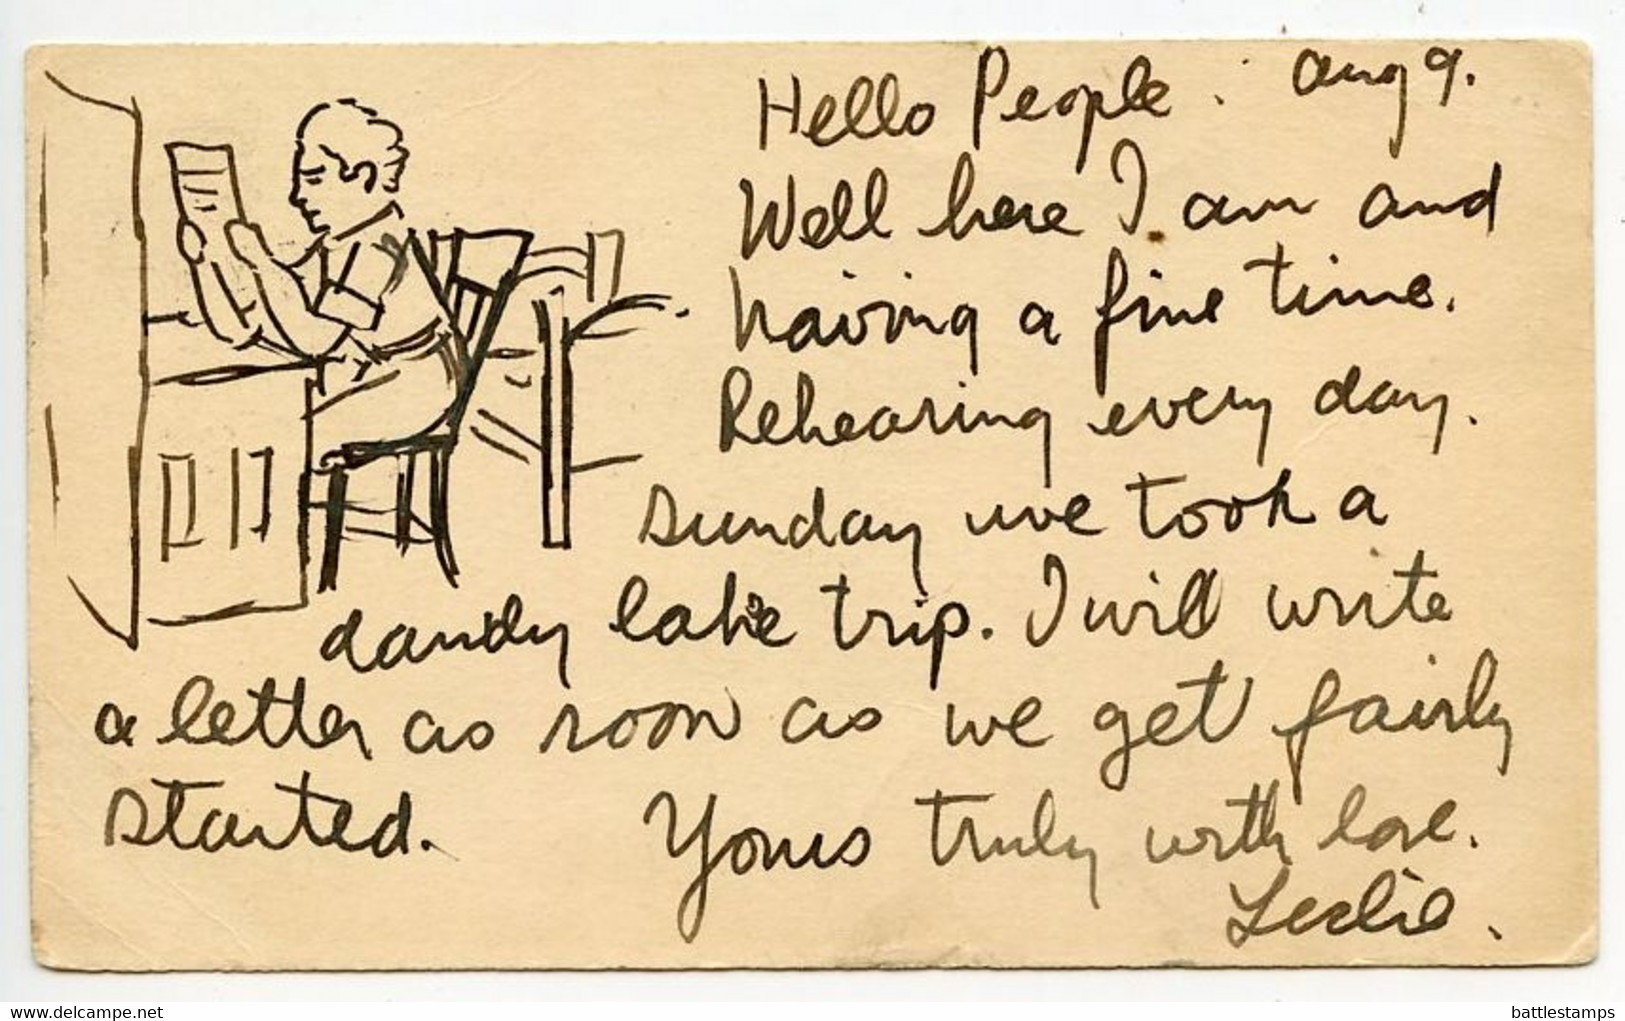 Hello People : Aug 9.
Well here I am and
having a fine time.
Rehearing every day.
Sunday we took a
dandy lake trip. I will write
a letter as soon as we get fairly
started. Yours truly with love.
Leslie.
delcampe.net battlestamps